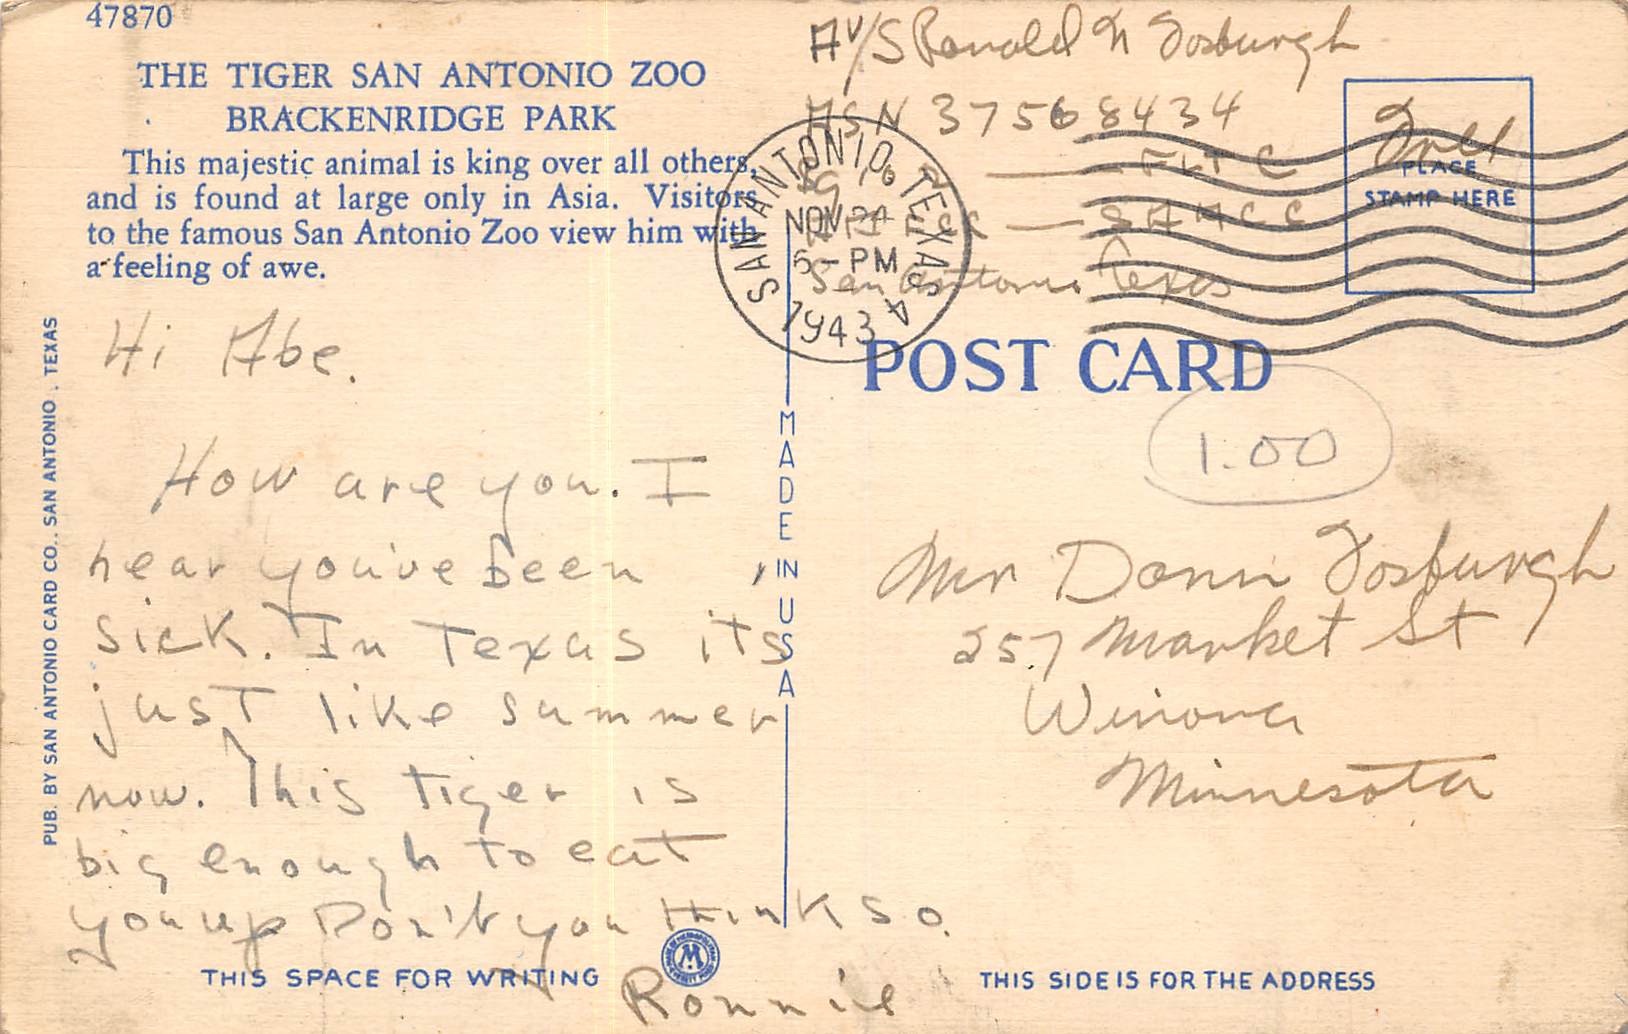 47870
THE TIGER SAN ANTONIO ZOO
BRACKENRIDGE PARK
This majestic animal is king over all others,
and is found at large only in Asia. Visitors
to the famous San Antonio Zoo view him with
a feeling of awe.
PUB. BY SAN ANTONIO CARD CO., SAN ANTONIO, TEXAS
Hi Abe.
How are you. I
hear you've been
sick. In Texas its
just like summer
now. This tiger is
big enough to eat
you up Don't you think so.
Ronnie
THIS SPACE FOR WRITING
MADE IN USA
A/S Ronald N Fosburgh
ASN 37568434
FLT C
SAACC
San Antonio Texas
SAN ANTONIO, TEXAS
NOV 24
5-PM
1943
PLACE
STAMP HERE
POST CARD
1.00
Mr Donn Fosburgh
257 Market St
Winona
Minnesota
THIS SIDE IS FOR THE ADDRESS